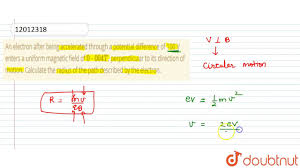 12012318
An electron after being accelerated through a potential difference of 100 V
enters a uniform magnetic field of 0·004T perpendicular to its direction of
motion. Calculate the radius of the path described by the electron.
V ⊥ B
↓
Circular motion
R = mv
eV = 1/2 mv²
v = 2eV
doubtnut